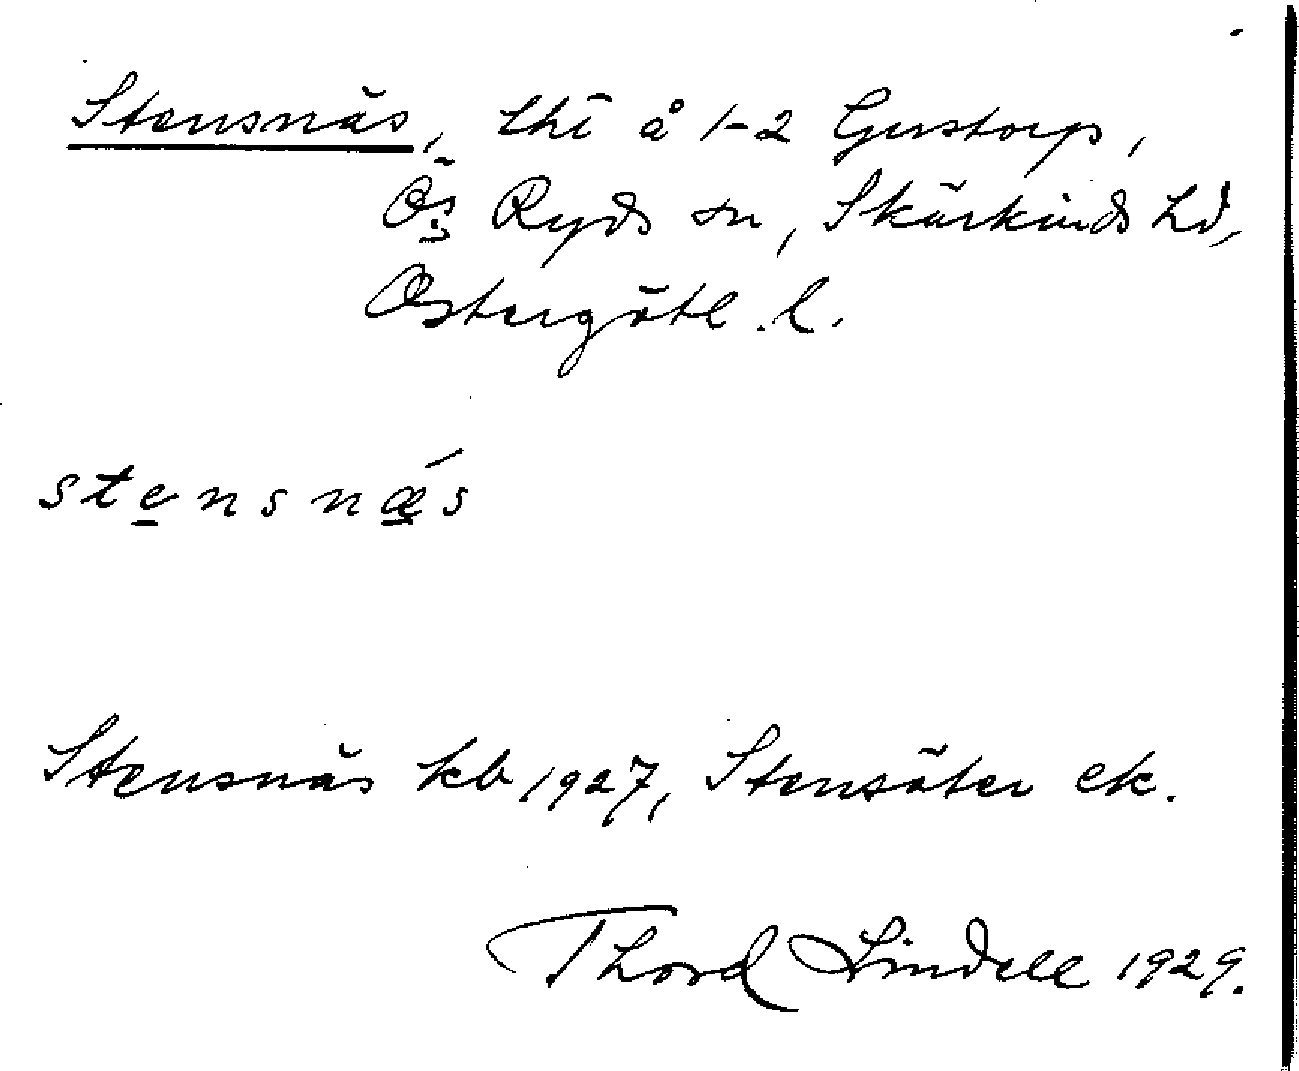 Stensnäs, lht å 1-2 Gustorp,
Ö Ryds sn, Skärkinds hd,
Östergötl. l.
stensnǽs
Stensnäs kb 1927, Stensäter ek.
Thord Lindell 1929.